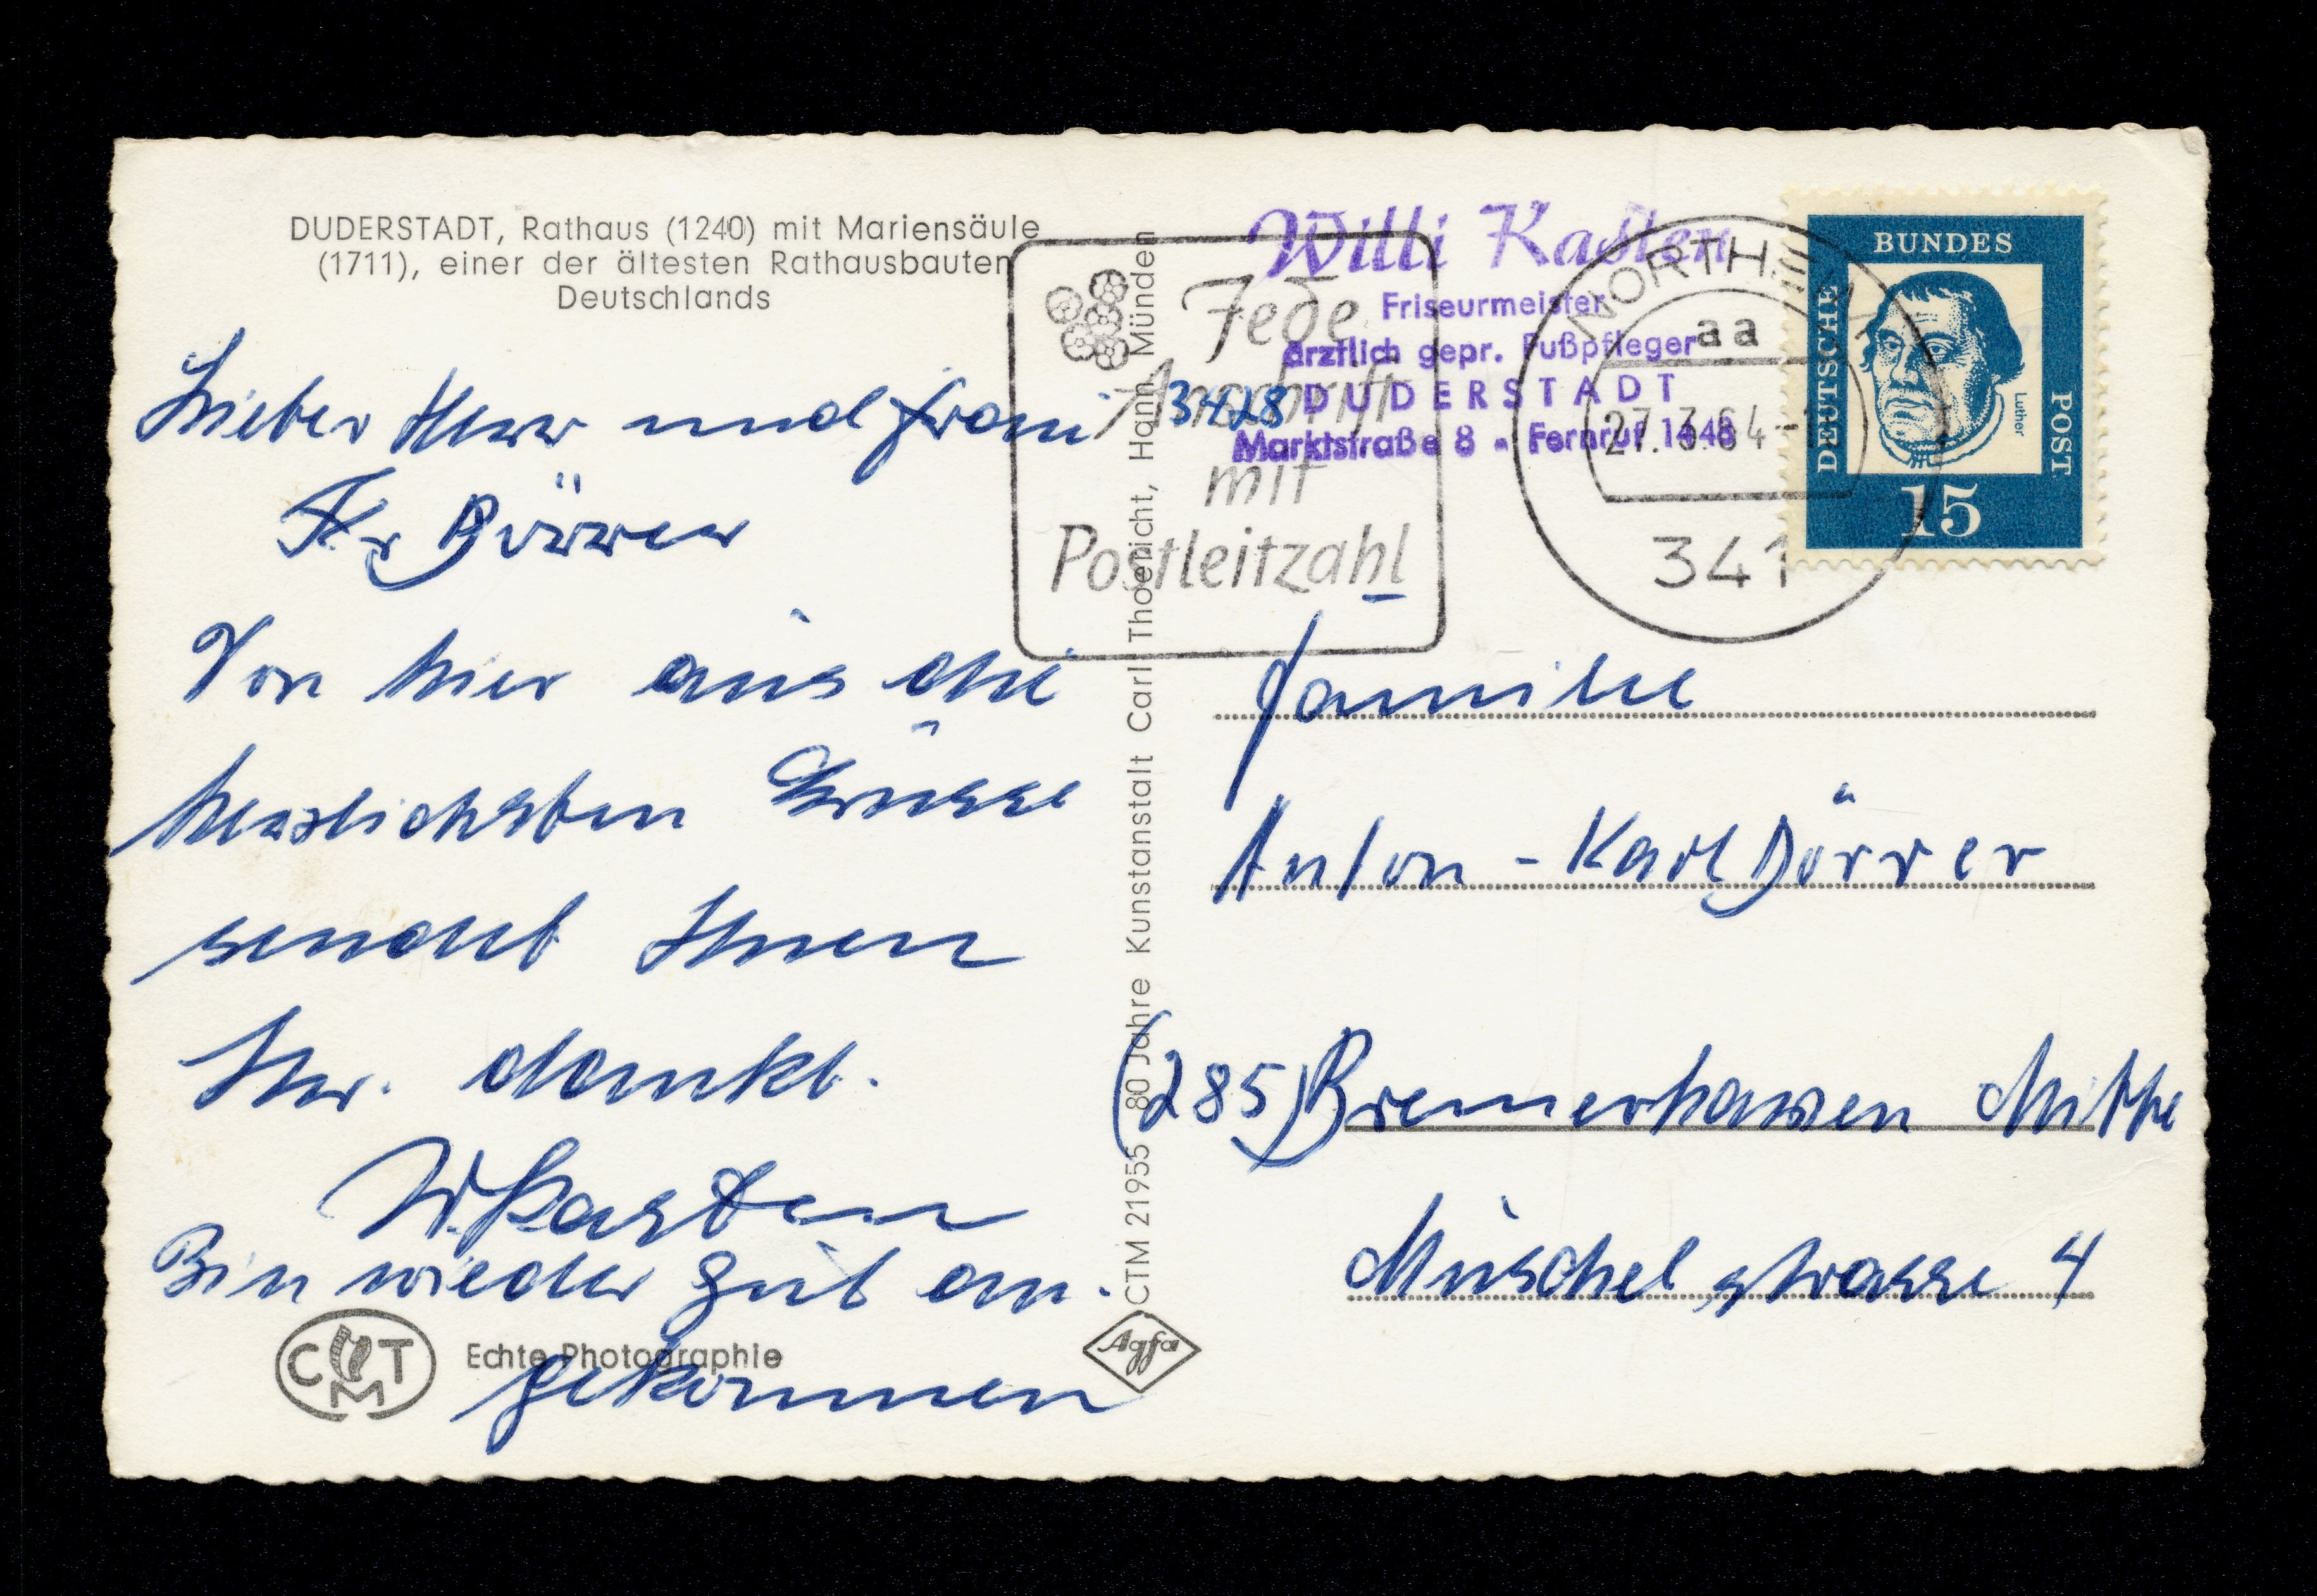 DUDERSTADT, Rathaus (1240) mit Mariensäule
(1711), einer der ältesten Rathausbauten
Deutschlands
Lieber Herr und Frau
Dörrer
Von hier aus die
herzlichsten Grüsse
sendet Ihnen
Ihr. dankb.
W. Kasten
Bin wieder gut an-
gekommen
CMT
Echte Photographie
CTM 21955 80 Jahre Kunstanstalt Carl Thoericht, Hann. Münden
Agfa
Jede
Anschrift
mit
Postleitzahl
Willi Kasten
Friseurmeister
ärztlich gepr. Fußpfleger
3428 DUDERSTADT
Marktstraße 8 - Fernruf 1446
NORTHEIM
aa
27.3.64-
341
DEUTSCHE BUNDES POST
Luther
15
Familie
Anton-Karl Dörrer
(285) Bremerhaven Mitte
Müschelstrasse 4